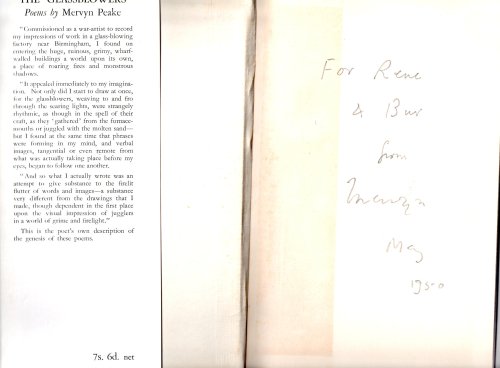 THE GLASSBLOWERS
Poems by Mervyn Peake
"Commissioned as a war-artist to record
my impressions of work in a glass-blowing
factory near Birmingham, I found on
entering the huge, ruinous, grimy, wharf-
walled buildings a world upon its own,
a place of roaring fires and monstrous
shadows.
"It appealed immediately to my imagina-
tion. Not only did I start to draw at once,
for the glassblowers, weaving to and fro
through the searing lights, were strangely
rhythmic, as though in the spell of their
craft, as they 'gathered' from the furnace-
mouths or juggled with the molten sand—
but I found at the same time that phrases
were forming in my mind, and verbal
images, tangential or even remote from
what was actually taking place before my
eyes, began to follow one another.
"And so what I actually wrote was an
attempt to give substance to the firelit
flutter of words and images—a substance
very different from the drawings that I
made, though dependent in the first place
upon the visual impression of jugglers
in a world of grime and firelight."
This is the poet's own description of
the genesis of these poems.
7s. 6d. net
For Rene
& Bur
from
Mervyn
May
1950